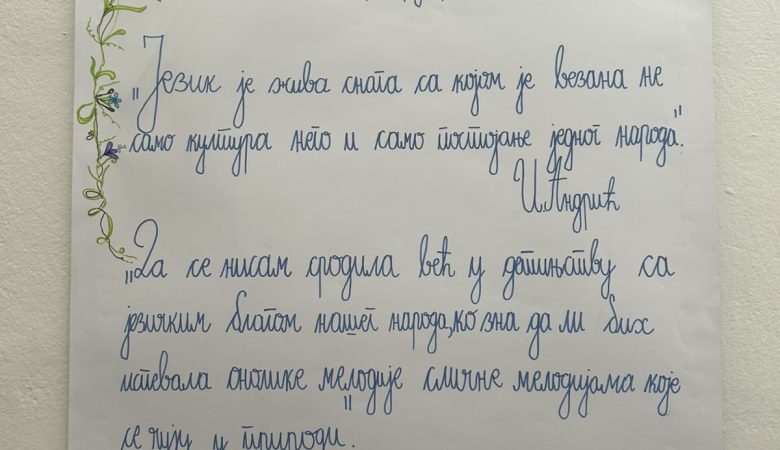 „Језик је жива снага са којом је везана не
само култура него и само постојање једног народа".
И. Андрић
„Да се нисам сродила већ у детињству са
језичким благом нашег народа, ко зна да ли бих
испевала онолике мелодије сличне мелодијама које
се чују у природи".